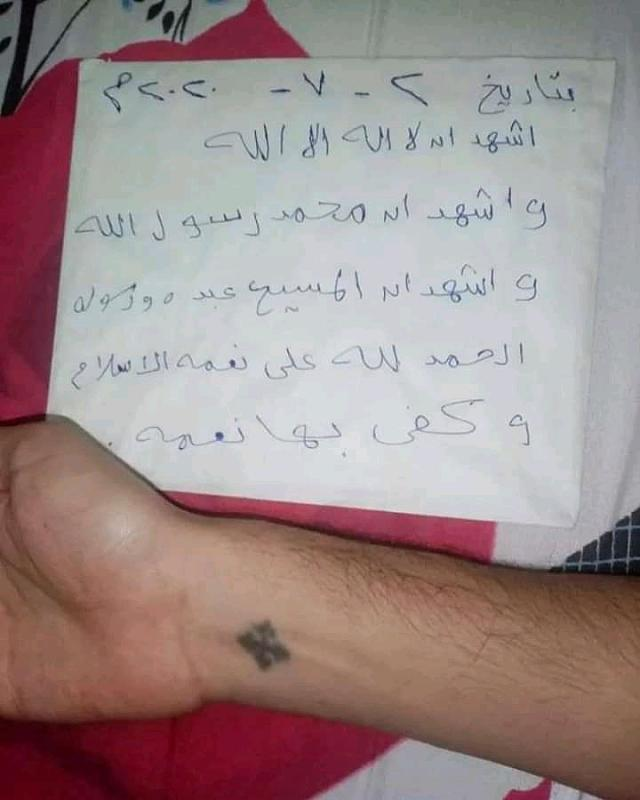 بتاريخ ٢ - ٧ - ٢٠٢٠م
اشهد ان لا اله الا الله
و اشهد ان محمد رسول الله
و اشهد ان المسيح عبد ه ورسوله
الحمد لله على نعمه الاسلام
و كفى بها نعمه .